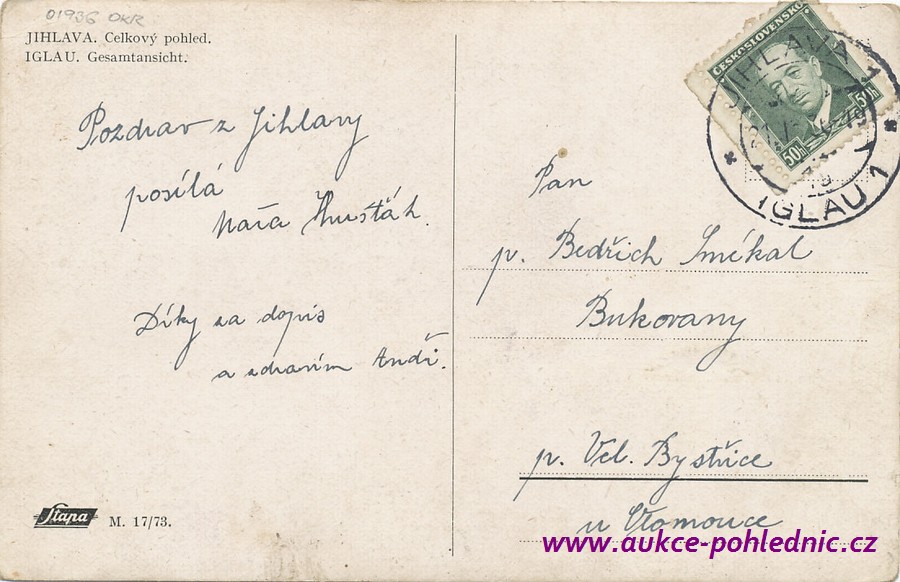 01936 OKR
JIHLAVA. Celkový pohled.
IGLAU. Gesamtansicht.
Pozdrav z Jihlavy
posílá
Díky za dopis
a zdravím
Stapa
M. 17/73.
ČESKOSLOVENSKO
50h
50h
JIHLAVA 1
IGLAU 1
Pan
p. Bedřich Smékal
Bukovany
p. Vel. Bystřice
u Olomouce
www.aukce-pohlednic.cz